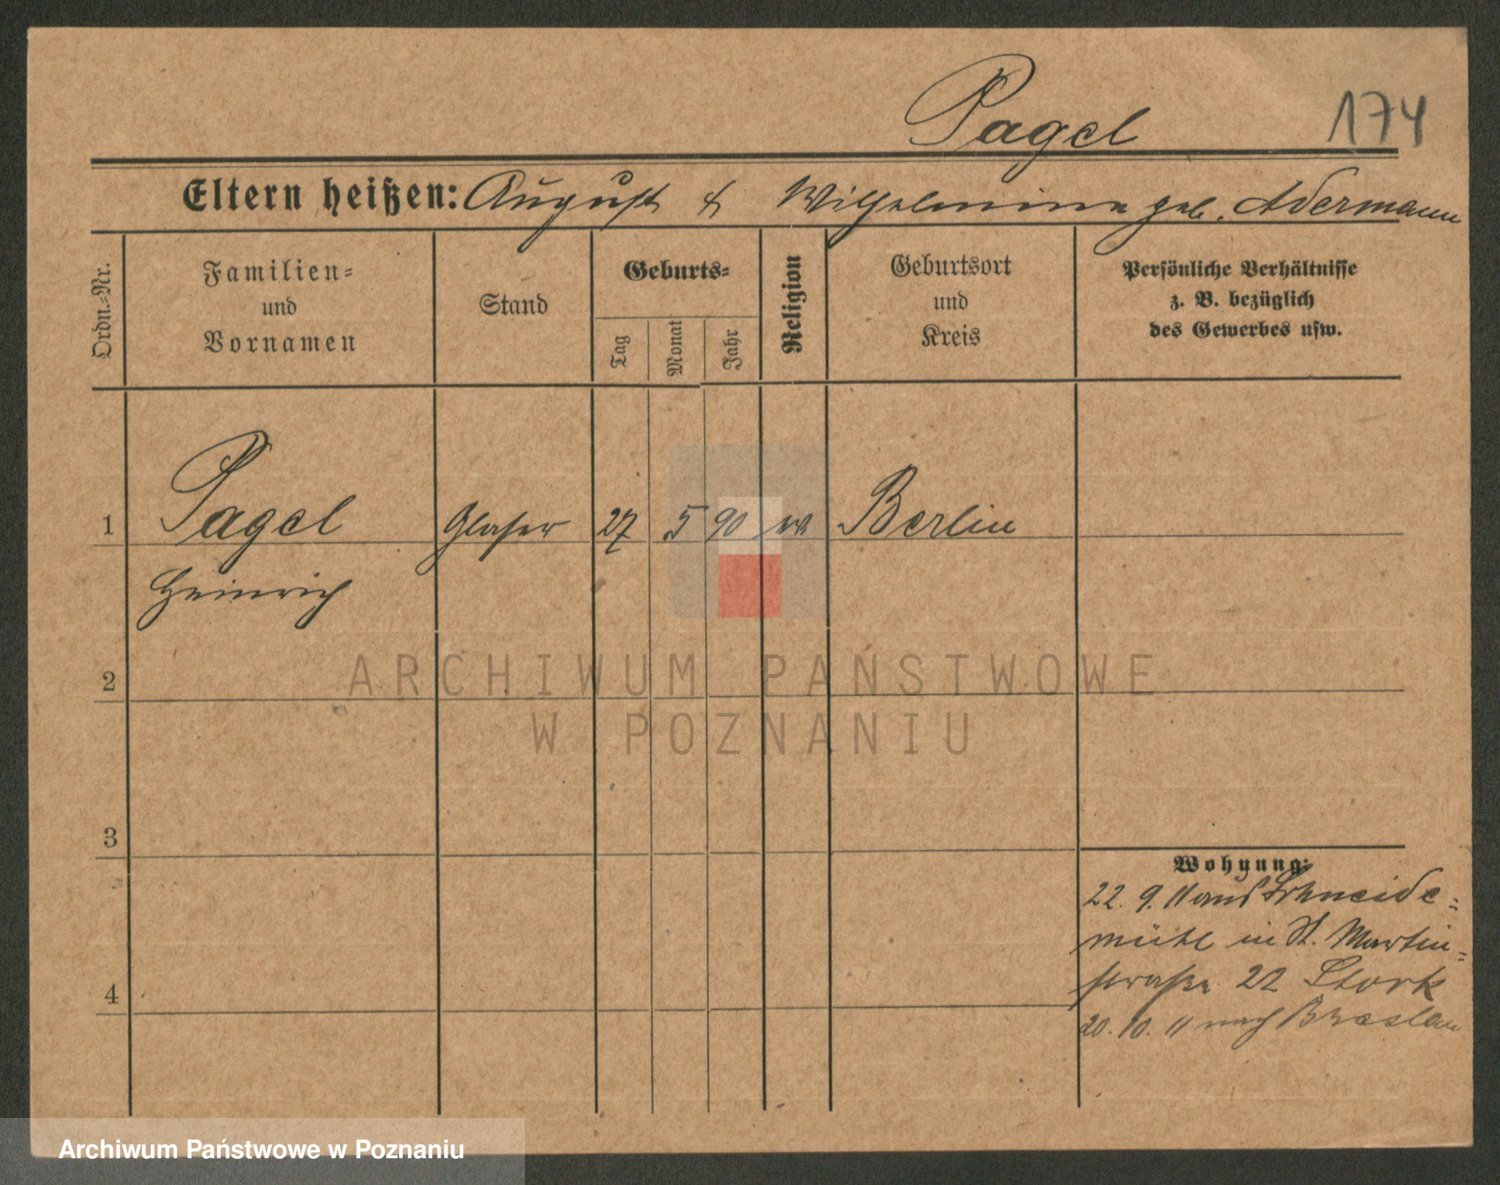 Pagel 174
Eltern heißen: August & Wilhelmine geb. Adermann
Ordn.-Nr.
Familien-
und
Vornamen
Stand
Geburts-
Tag
Monat
Jahr
Religion
Geburtsort
und
Kreis
Persönliche Verhältnisse
z. B. bezüglich
des Gewerbes usw.
1 Pagel Glaser 27 5 90 Berlin
Heinrich
2
ARCHIWUM PAŃSTWOWE
W POZNANIU
3
Wohnung:
22. 9. 11 aus Schneide-
mühl in St. Martin-
straße 22 Stork
4
20. 10. 11 nach Breslau
Archiwum Państwowe w Poznaniu